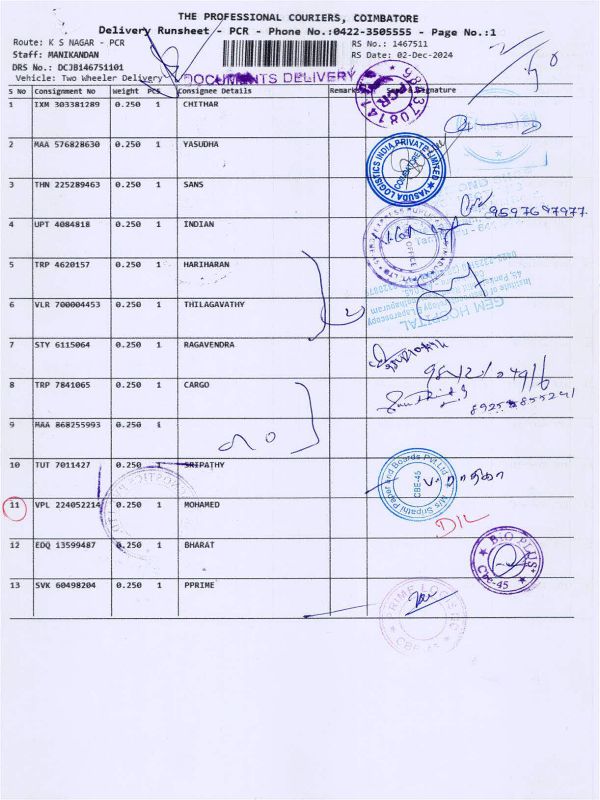 THE PROFESSIONAL COURIERS, COIMBATORE
Delivery Runsheet - PCR - Phone No.:0422-3505555 - Page No.:1
Route: K S NAGAR - PCR
RS No.: 1467511
Staff: MANIKANDAN
RS Date: 02-Dec-2024
DRS No.: DCJB146751101
Vehicle: Two Wheeler Delivery
DOCUMENTS DELIVERY
S No Consignment No Weight PCS Consignee Details Remarks & Signature
1 IXM 303381289 0.250 1 CHITHAR
2 MAA 576828630 0.250 1 YASUDHA
3 THN 225289463 0.250 1 SANS
4 UPT 4084818 0.250 1 INDIAN
5 TRP 4620157 0.250 1 HARIHARAN
6 VLR 700004453 0.250 1 THILAGAVATHY
7 STY 6115064 0.250 1 RAGAVENDRA
8 TRP 7841065 0.250 1 CARGO
9 MAA 868255993 0.250 1
10 TUT 7011427 0.250 1 SRIPATHY
11 VPL 224052214 0.250 1 MOHAMED
12 EDQ 13599487 0.250 1 BHARAT
13 SVK 60498204 0.250 1 PPRIME
PCR
9843708141
YASUDA LOGISTICS INDIA PRIVATE LIMITED
COIMBATORE
9597697977
OFFICE
GEM HOSPITAL
M/s Sripathi Paper and Boards Pvt.Ltd
CBE-45
D/L
BIO PLUS
Cbe-45
PRIME LOGIS
CBE-45